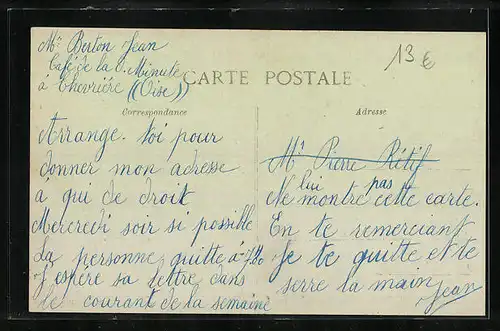 Mr Berton Jean
Café de la Minute
à Chevrière (Oise)
13 €
CARTE POSTALE
Correspondance
Adresse
Arrange-toi pour
donner mon adresse
à qui de droit
Mercredi soir si possible
La personne quitte à 7h
J'espère sa lettre dans
le courant de la semaine
Mr Pierre Rétif
Ne lui montre pas cette carte.
En te remerciant
Je te quitte et te
serre la main
Jean